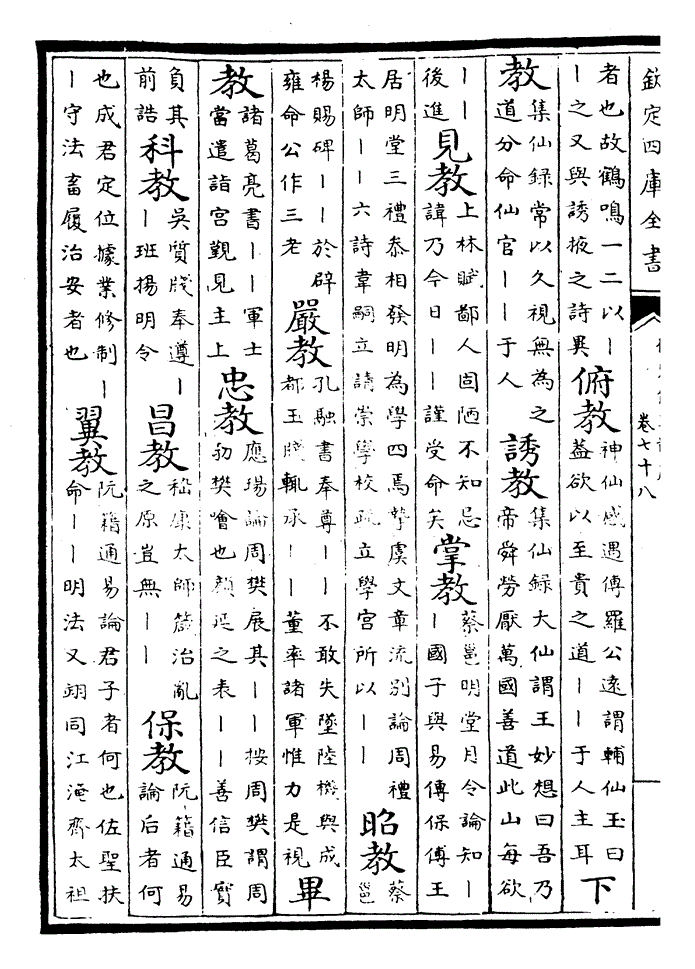 欽定四庫全書
卷七十八
者也故鶴鳴一二以｜｜之又與誘掖之詩異俯教神仙感遇傳羅公遠謂輔仙玉曰蓋欲以至貴之道｜｜于人主耳下
教集仙録常以久視無為之道分命仙官｜｜于人誘教集仙録大仙謂王妙想曰吾乃帝舜勞厭萬國善道此山每欲
｜｜後進見教上林賦鄙人固陋不知忌諱乃今日｜｜謹受命矣掌教蔡邕明堂月令論知｜｜國子與易傳保傅王
居明堂三禮叅相發明為學四焉摯虞文章流别論周禮太師｜｜六詩韋嗣立請崇學校疏立學官所以｜｜昭教蔡邕
楊賜碑｜｜於辟雍命公作三老嚴教孔融書奉尊｜｜不敢失墜陸機與成都王牋輒承｜｜董率諸軍惟力是視畢
教諸葛亮書｜｜軍士當遣詣宮覲見主上忠教應瑒論周樊展其｜｜按周樊謂周勃樊噲也顔延之表｜｜善信臣實
負其前誥科教吳質牋奉遵｜｜班揚明令昌教嵇康太師箴治亂之原豈無｜｜保教阮籍通易論后者何
也成君定位據業修制｜｜守法畜履治安者也翼教阮籍通易論君子者何也佐聖扶命｜｜明法又翊同江淹齊太祖